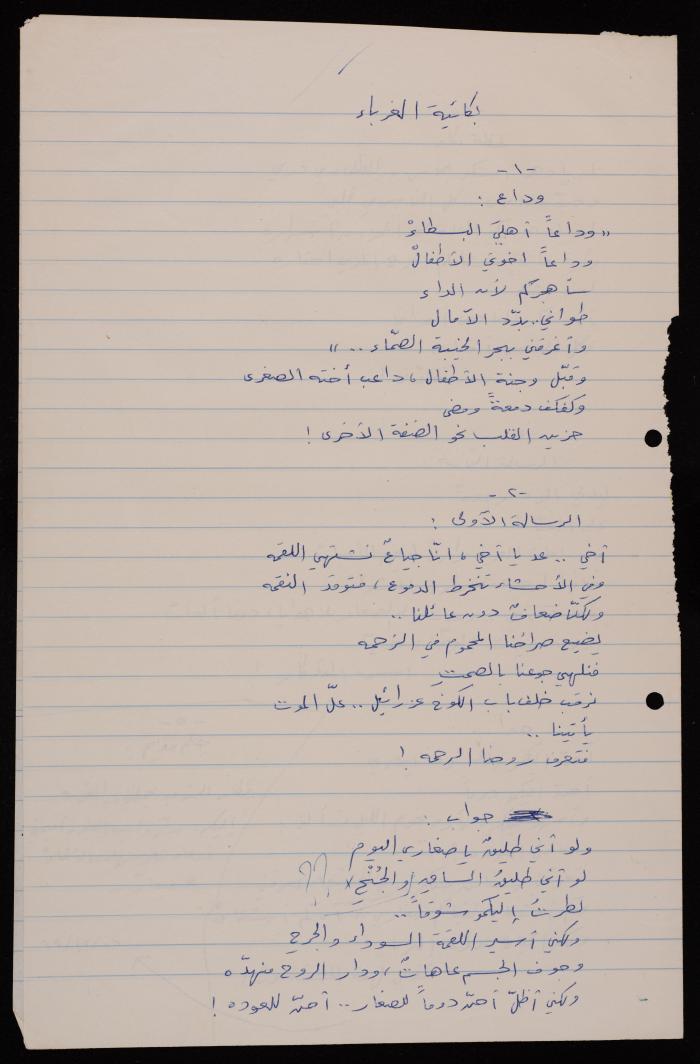 بكائية الغرباء
-١-
وداع :
"وداعاً أهليَ البسطاءْ
وداعاً اخوتي الأطفالْ
سأهجركم لأن الداء
طواني.. بدّد الآمال
وأغرقني ببحر الخيبة الصمّاء .. "
وقبّل وجنة الأطفال، داعب أخته الصغرى
وكفكف دمعةً ومضى
حزين القلب نحو الضفة الأخرى !
-٢-
الرسالة الأولى :
أخي .. عد يا أخي، انّا جياعٌ نشتهي اللقمه
وفي الأحشاء تنخرط الدموع، فتوقد النقمه
ولكنّا ضعافٌ دون عائلنا ..
يضيع صراخنا المحموم في الزحمه
فنلهي جوعنا بالصمتِ
نرقب خلف باب الكوخ عزرائيل .. علّ الموت
يأتينا ..
فتعرف روحنا الرحمه !
جواب :
ولو أني طليقٌ يا صغاري اليوم
لو أني طليقُ الساقين (والجُنْحِ) ؟؟
لطرتُ إليكمُ شوقاً ..
ولكني أسير اللقمة السوداء والجرح
وجوف الجسم عاهاتٌ، ودار الروح منهدّه
ولكني أظلّ أحنّ دوماً للصغار .. أحنّ للعوده !